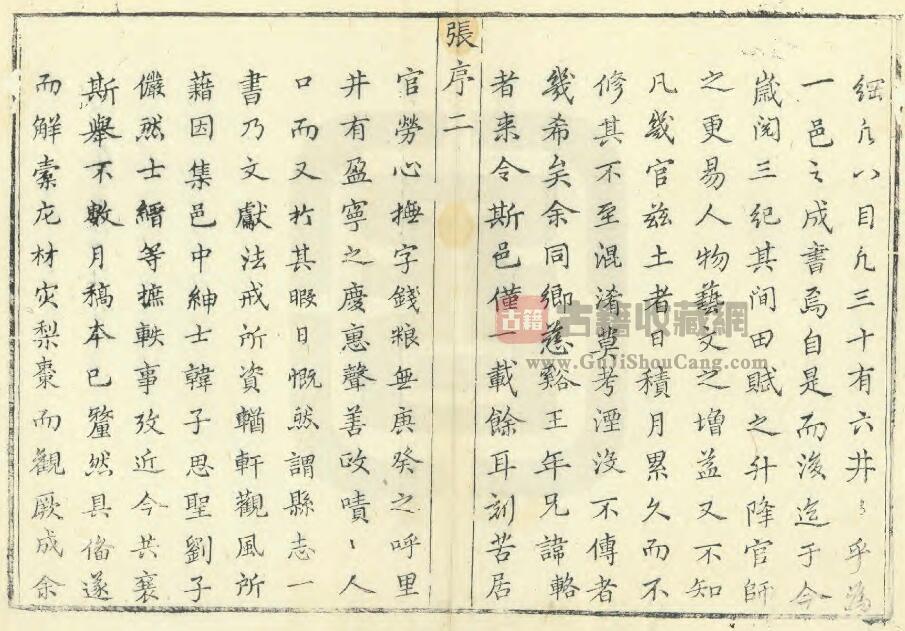 綱凢八目凢三十有六井〻乎為
一邑之成書焉自是而後迄于今
嵗閱三紀其间田賦之升降官師
之更易人物藝文之增益又不知
凡幾官兹土者日積月累久而不
修其不至混淆莫考湮没不傳者
幾希矣余同鄉慈谿王年兄諱輅
者来令斯邑僅一載餘耳刻苦居
張序二
官勞心撫字錢粮無庚癸之呼里
井有盈寧之慶惠聲善政嘖〻人
口而又扵其暇日慨然謂縣志一
書乃文獻法戒所資輶軒觀風所
藉因集邑中紳士韓子思聖劉子
儼然士縉等摭軼事攷近今共襄
斯舉不數月稿本已釐然具偹遂
而解橐庀材灾梨棗而觀厥成余
古籍
古籍收藏網
www.GuJiShouCang.com